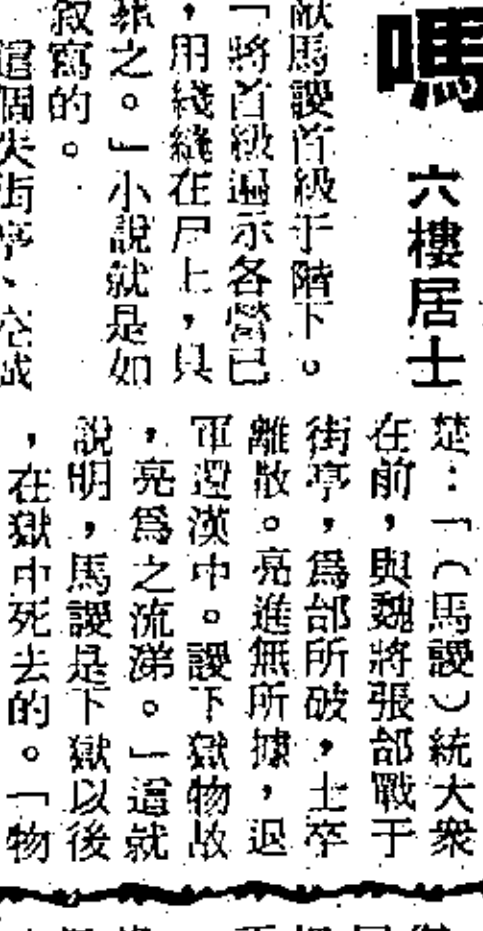 嗎
六樓居士
獻馬謖首級于階下。
「將首級遍示各營已
，用綫縫在尸上，具
葬之。」小說就是如
叙寫的。
這個失街亭、空城
楚：「（馬謖）統大衆
在前，與魏將張郃戰于
街亭，爲郃所破，士卒
離散。亮進無所據，退
軍還漢中。謖下獄物故
，亮爲之流涕。」這就
說明，馬謖是下獄以後
，在獄中死去的。「物